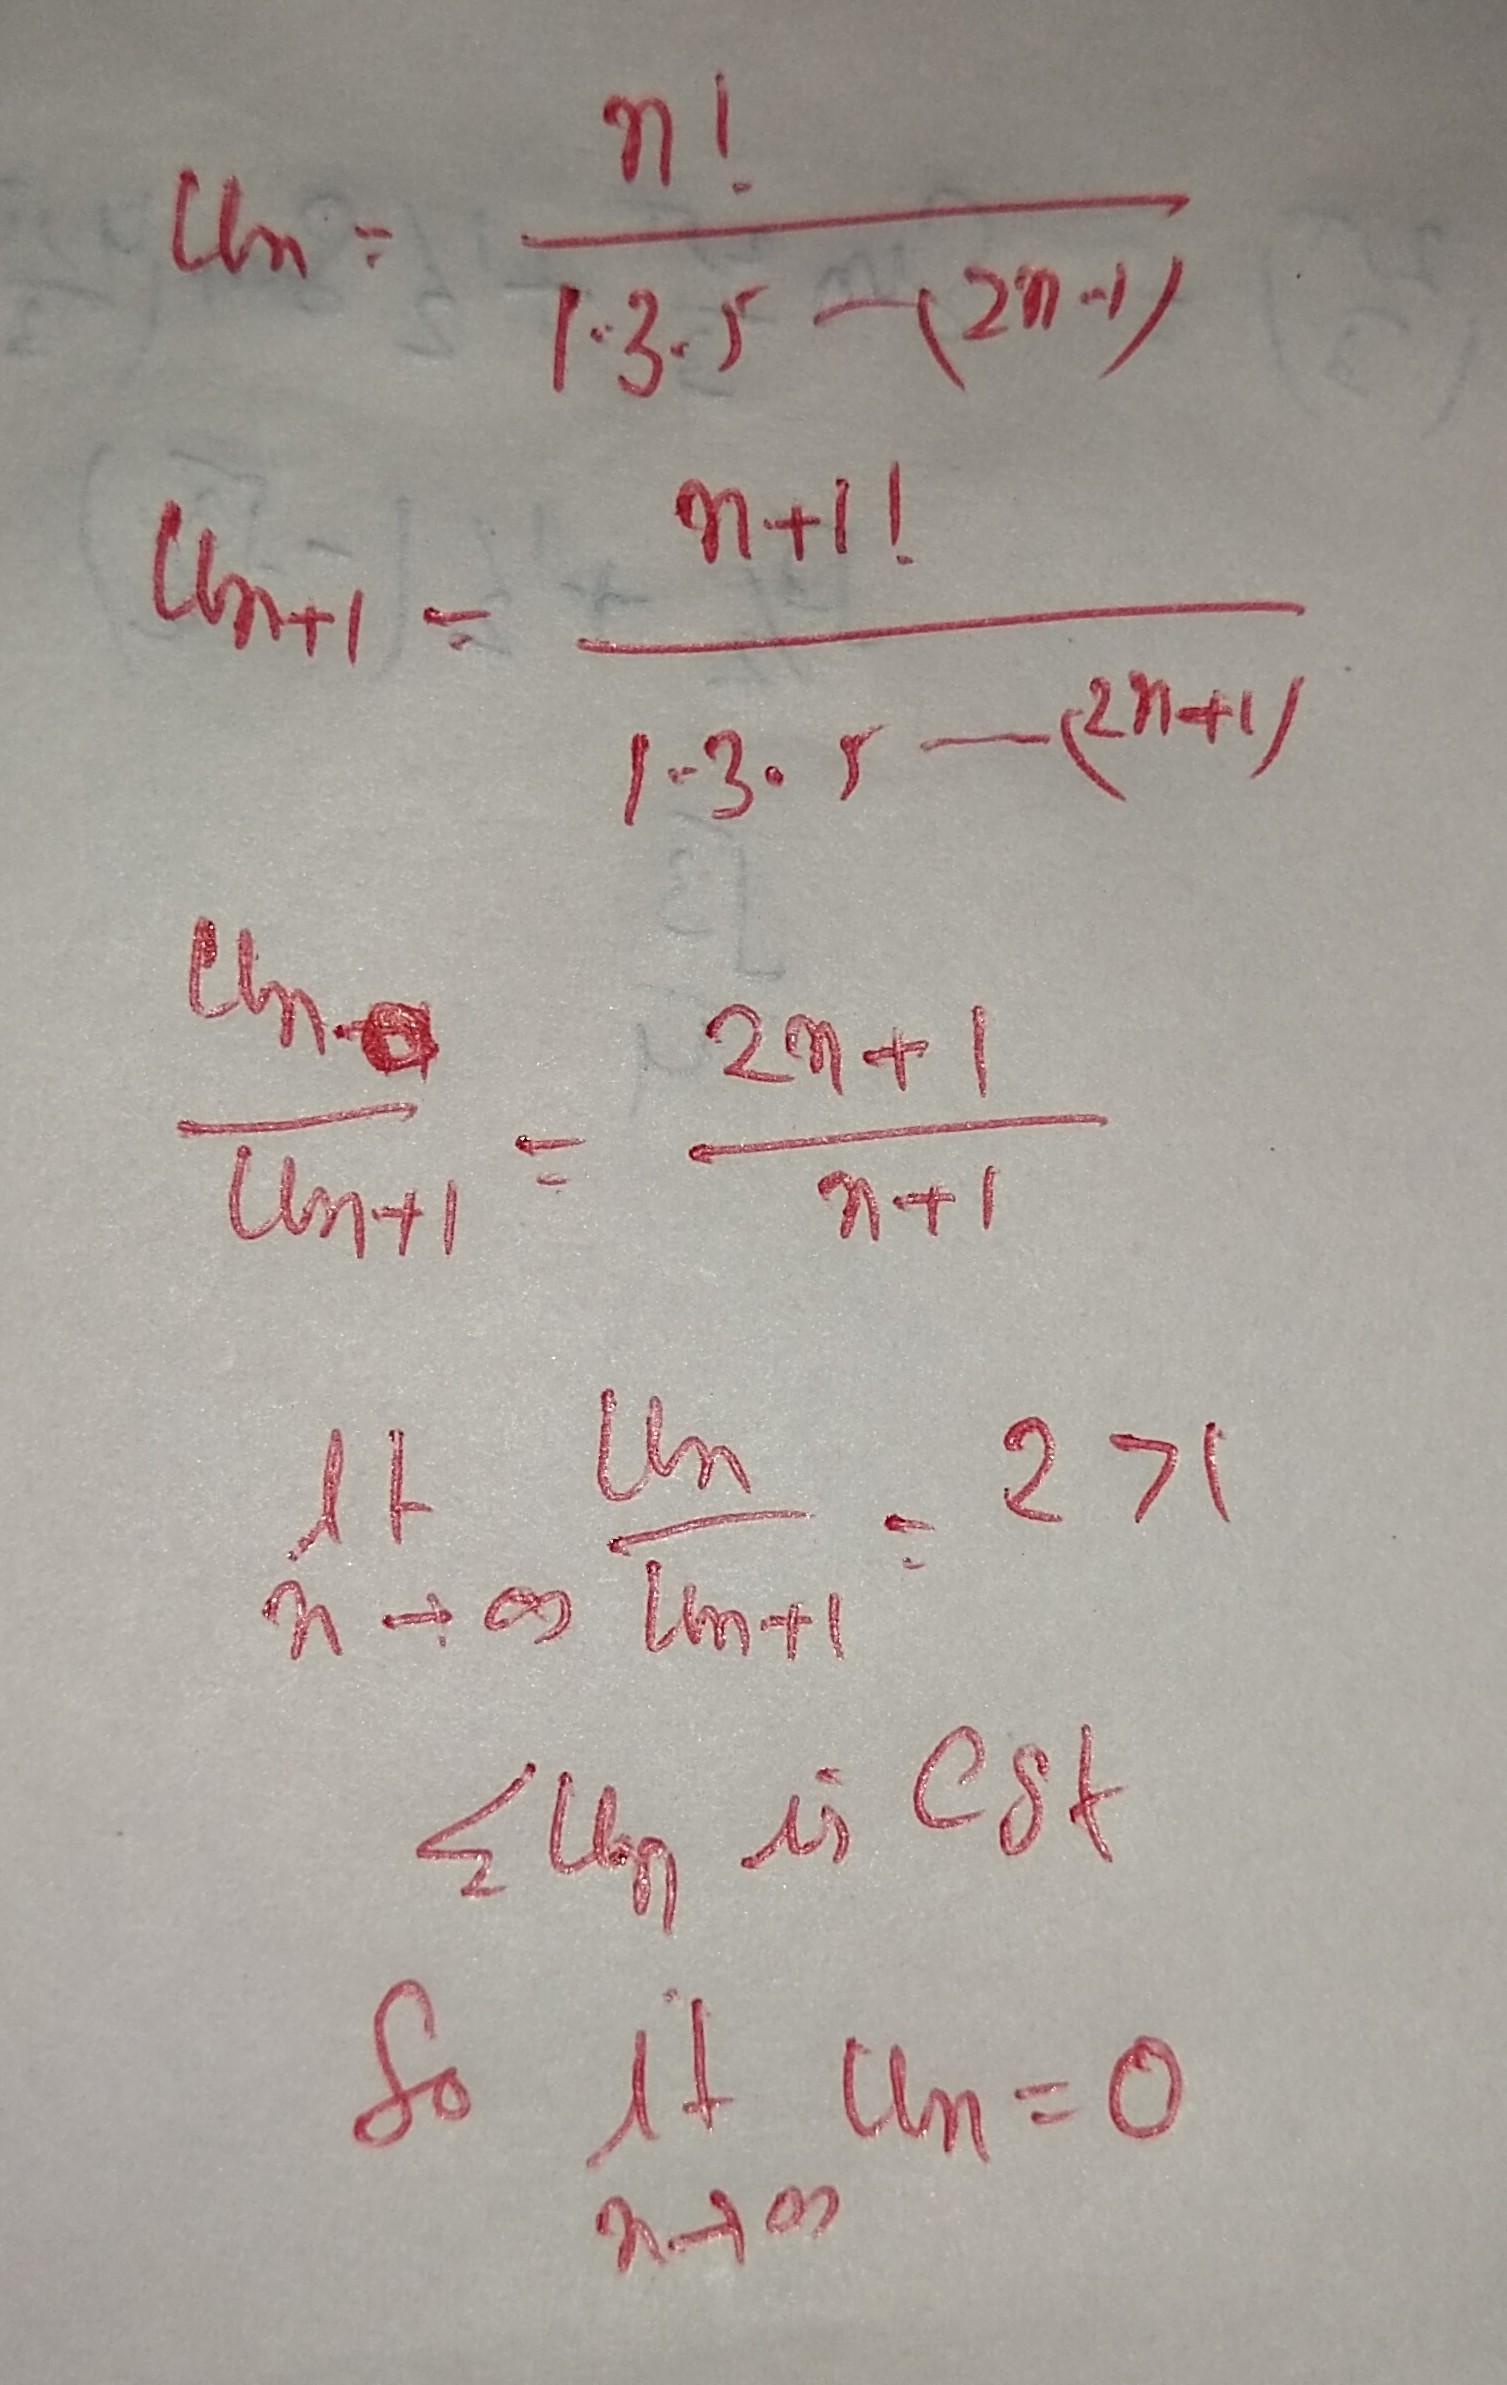 Un = n! / 1·3·5 — (2n-1)
Un+1 = n+1! / 1·3·5 — (2n+1)
Un / Un+1 = 2n+1 / n+1
lt n→∞ Un / Un+1 = 2 >1
ΣUn is Cgt
So lt n→∞ Un = 0